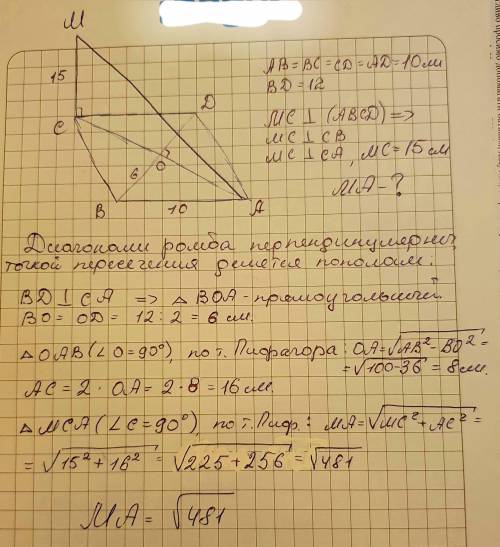 M
15
C
D
6
O
B
10
A
AB = BC = CD = AD = 10 см
BD = 12
MC ⊥ (ABCD) =>
MC ⊥ CB
MC ⊥ CA, MC = 15 см
MA - ?
Диагонали ромба перпендикулярны,
точкой пересечения делятся пополам:
BD ⊥ CA => △ BOA - прямоугольный.
BO = OD = 12 : 2 = 6 см.
△ OAB (∠O = 90°), по т. Пифагора: OA = √AB² - BO² =
= √100 - 36 = 8 см.
AC = 2 · OA = 2 · 8 = 16 см.
△ MCA (∠C = 90°) по т. Пиф.: MA = √MC² + AC² =
= √15² + 16² = √225 + 256 = √481
MA = √481